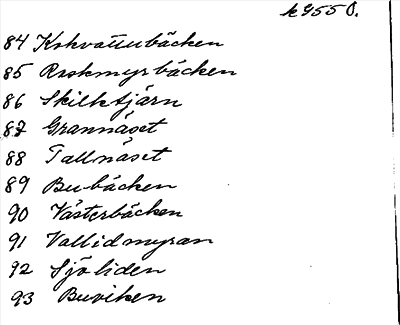 k 9550.
84 Kokvattubäcken
85 Raskmyrbäcken
86 Skilktjärn
87 Grannäset
88 Tallnäset
89 Bubäcken
90 Västerbäcken
91 Vallidmyran
92 Sjöliden
93 Buviken